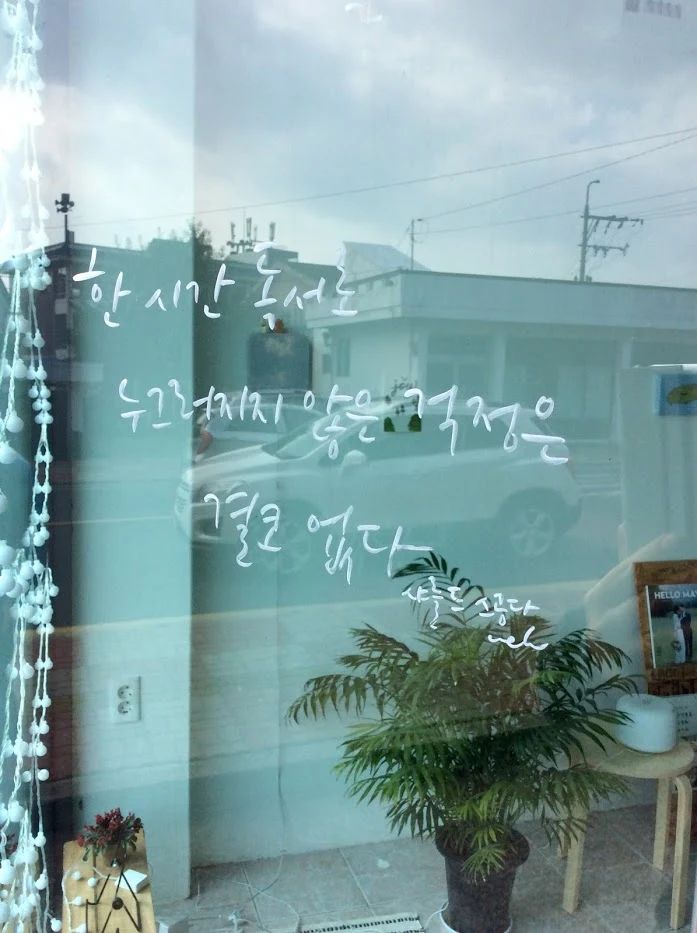 한 시간 독서로
누그러지지 않은 걱정은
결코 없다
샤를드 스공다
HELLO MA